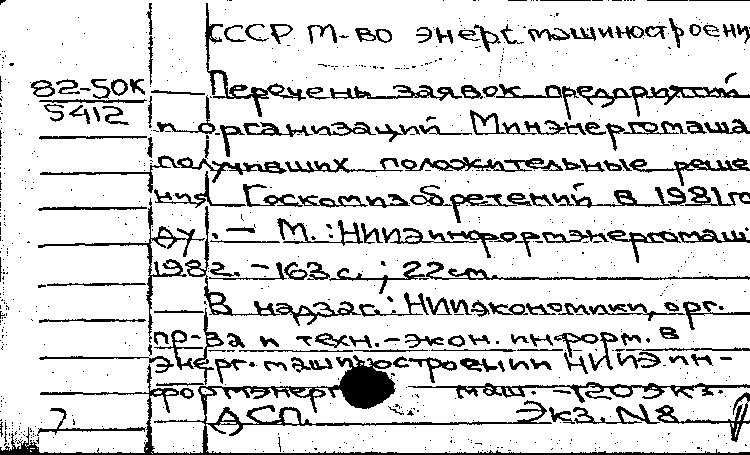 СССР М-во энерг. машиностроени
82-50к
5412
Перечень заявок предприятий
и организаций Минэнергомаша
получивших положительные реше
ния Госкомизобретений в 1981 го
ду. - М. : НИИЭинформэнергомаш
1982. - 163 с. ; 22 см.
В надзаг.: НИИэкономики, орг.
пр-ва и техн.-экон. информ. в
энерг. машиностроении НИИЭин-
формэнерг маш. - 120 экз.
ДСП. Экз. N 8